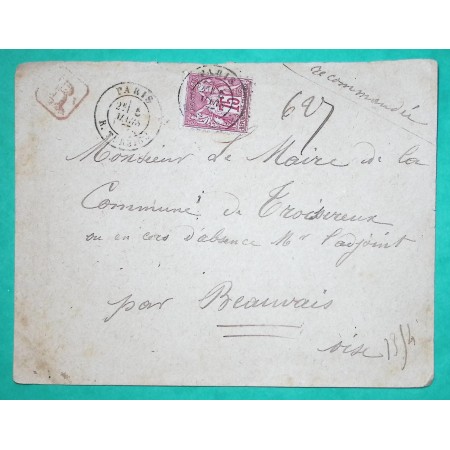 R
PARIS
MARS
PARIS
recommandée
627
Monsieur Le Maire de la
Commune de Troissereux
ou en cas d'absence Mr l'adjoint
par Beauvais
oise